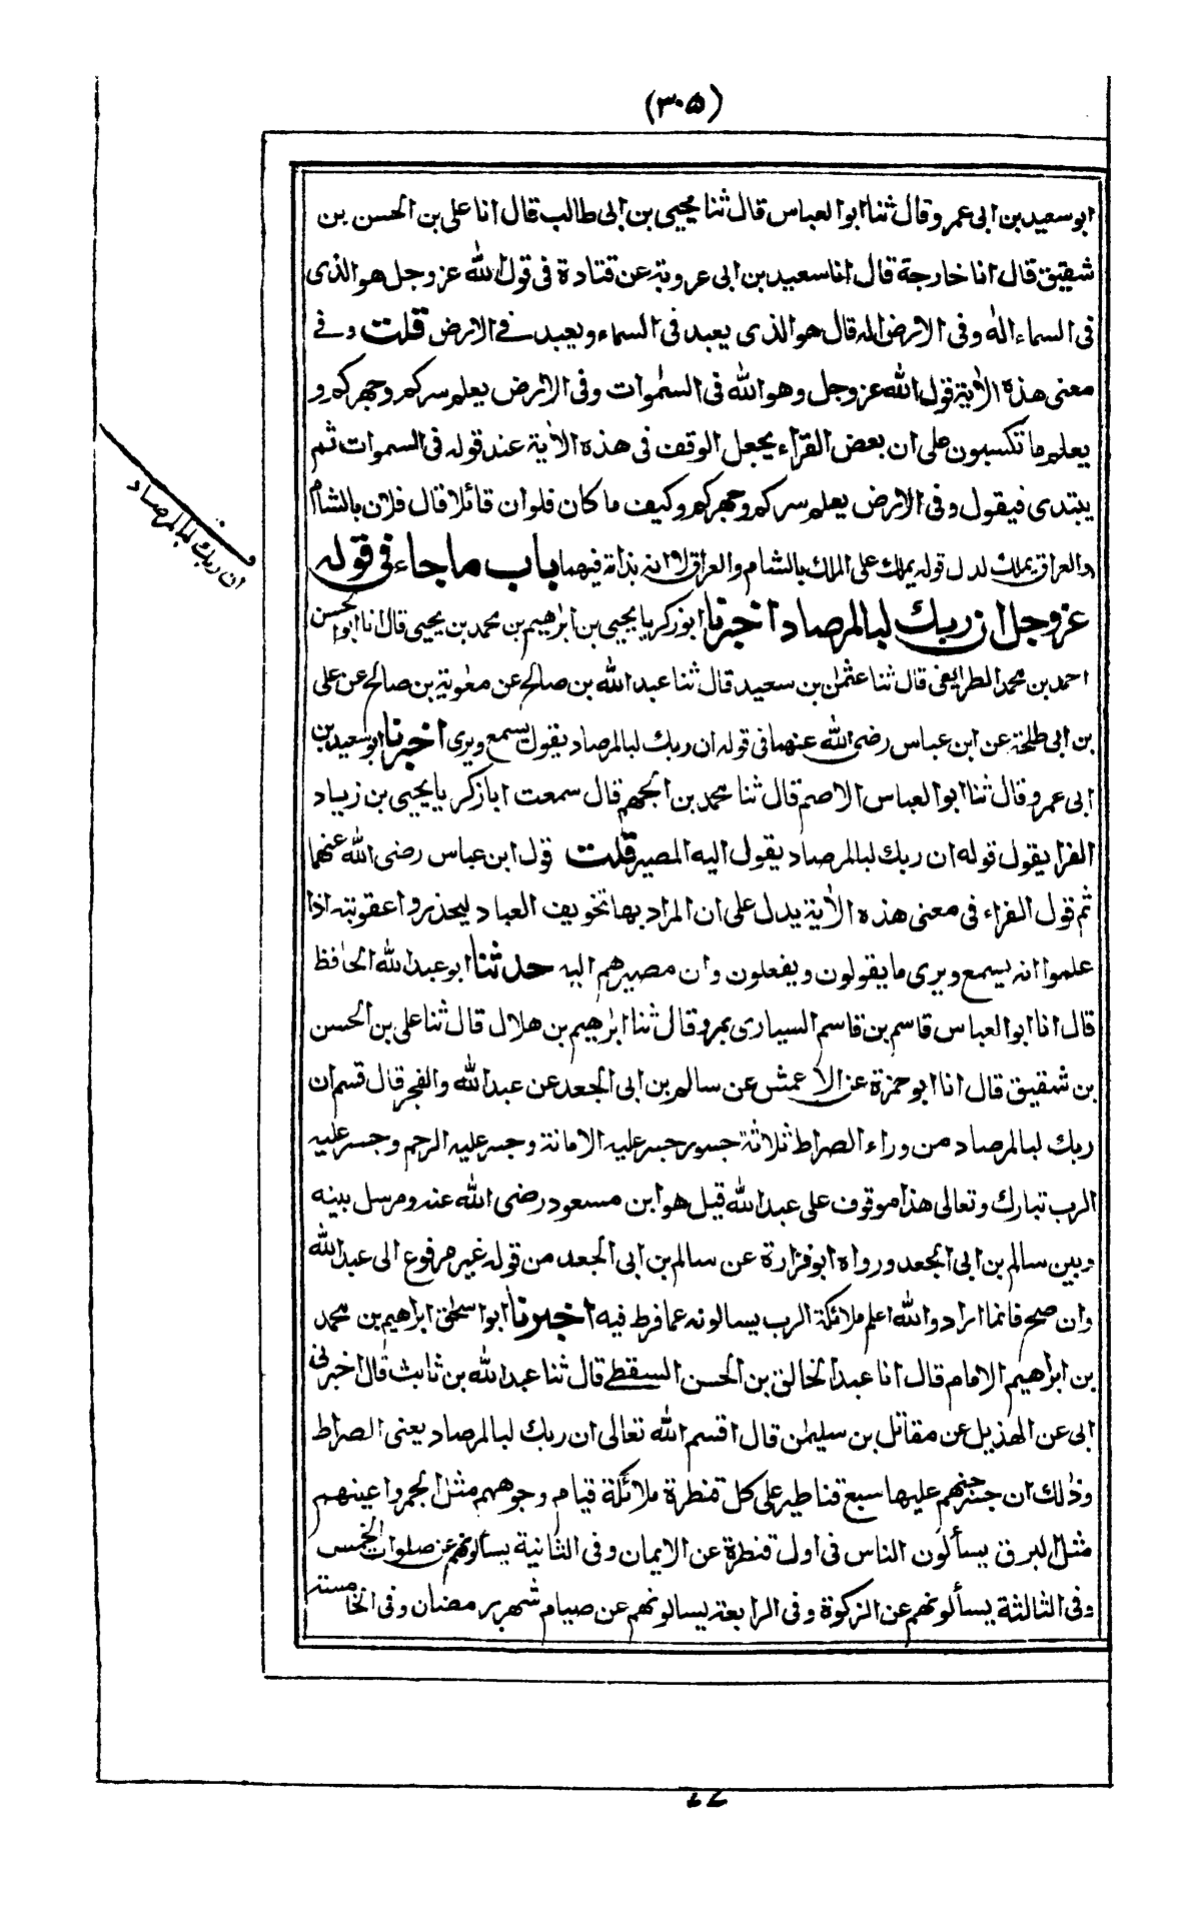 (٣٠٥)
ابو سعيد بن ابى عمرو قال ثنا ابو العباس قال ثنا يحيى بن ابى طالب قال انا على بن الحسن بن
شقيق قال انا خارجة قال انا سعيد بن ابى عروبة عن قتادة فى قول الله عز وجل هو الذى
فى السماء اله وفى الارض اله قال هو الذى يعبد فى السماء ويعبد فى الارض قلت وفى
معنى هذه الاٰية قول الله عز وجل وهو الله فى السمٰوات وفى الارض يعلم سركم وجهركم و
يعلم ما تكسبون على ان بعض القراء يجعل الوقف فى هذه الاٰية عند قوله فى السموات ثم
يبتدى فيقول وفى الارض يعلم سركم وجهركم وكيف ما كان فلو ان قائلا قال فلان بالشام
والعراق يملك لدل قوله يملك على الملك بالشام والعراق لا انه بذاته فيهما باب ما جاء فى قوله
عز وجل ان ربك لبالمرصاد اخبرنا ابو زكريا يحيى بن ابرٰهيم بن محمد بن يحيى قال انا ابو الحسن
احمد بن محمد الطرايفى قال ثنا عثمٰن بن سعيد قال ثنا عبد الله بن صالح عن معٰوية بن صالح عن على
بن ابى طلحة عن ابن عباس رضى الله عنهما فى قوله ان ربك لبالمرصاد يقول يسمع ويرى اخبرنا ابو سعيد بن
ابى عمرو قال ثنا ابو العباس الاصم قال ثنا محمد بن الجهم قال سمعت ابا زكريا يحيى بن زياد
الفرا يقول قوله ان ربك لبالمرصاد يقول اليه المصير قلت قول ابن عباس رضى الله عنهما
ثم قول الفراء فى معنى هذه الاٰية يدل على ان المراد بها تخويف العباد ليحذروا عقوبته اذا
علموا انه يسمع ويرى ما يقولون ويفعلون وان مصيرهم اليه حدثنا ابو عبد الله الحافظ
قال انا ابو العباس قاسم بن قاسم السيارى بمرو قال ثنا ابرٰهيم بن هلال قال ثنا على بن الحسن
بن شقيق قال انا ابو حمزة عن الاعمش عن سالم بن ابى الجعد عن عبد الله والفجر قال قسم ان
ربك لبالمرصاد من وراء الصراط ثلاثة جسور جسر عليه الامانة وجسر عليه الرحم وجسر عليه
الرب تبارك وتعالى هذا موقوف على عبد الله قيل هو ابن مسعود رضى الله عنه ومرسل بينه
وبين سالم بن ابى الجعد ورواه ابو فزارة عن سالم بن ابى الجعد من قوله غير مرفوع الى عبد الله
وان صح فانما اراد والله اعلم ملائكة الرب يسالونه عما فرط فيه اخبرنا ابو اسحٰق ابراهيم بن محمد
بن ابرٰهيم الامام قال انا عبد الخالق بن الحسن السقطى قال ثنا عبد الله بن ثابت قال اخبرنى
ابى عن الهذيل عن مقاتل بن سليمٰن قال اقسم الله تعالى ان ربك لبالمرصاد يعنى الصراط
وذٰلك ان جسر جهنم عليها سبع قناطير على كل قنطرة ملائكة قيام وجوههم مثل الجمر واعينهم
مثل البرق يسألون الناس فى اول قنطرة عن الايمان وفى الثانية يسألونهم عن صلوات الخمس
وفى الثالثة يسألونهم عن الزكوة وفى الرابعة يسالونهم عن صيام شهر رمضان وفى الخامسة
ان ربك لبالمرصاد